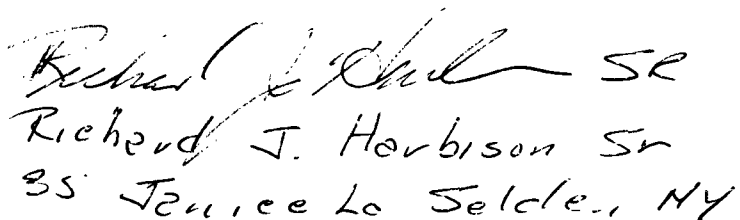 Richard J. Harbison SR
Richard J. Harbison Sr
35 Janice La Selden, NY